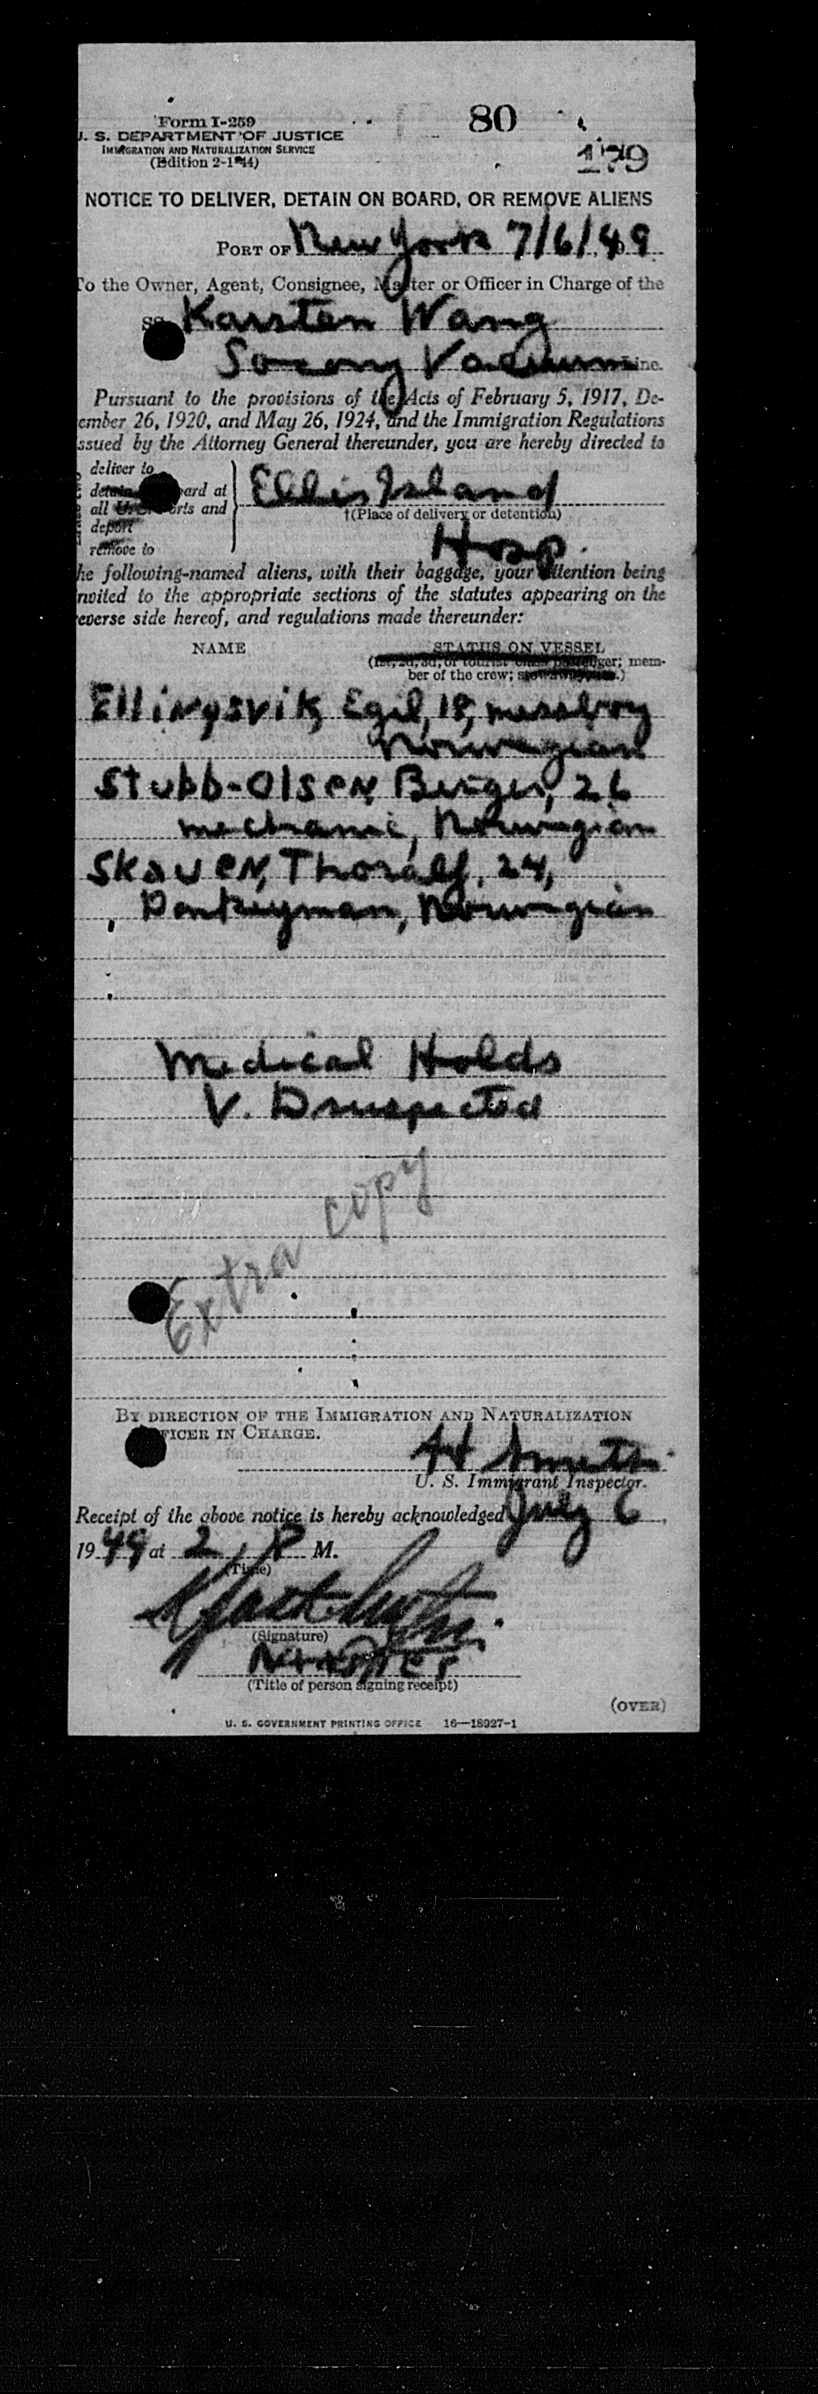 Form I-259
80
U. S. DEPARTMENT OF JUSTICE
IMMIGRATION AND NATURALIZATION SERVICE
(Edition 2-1-44)
179
NOTICE TO DELIVER, DETAIN ON BOARD, OR REMOVE ALIENS
PORT OF New York 7/6/49
To the Owner, Agent, Consignee, Master or Officer in Charge of the
SS Karsten Wang
Socony Vacuum Line.
Pursuant to the provisions of the Acts of February 5, 1917, De-
cember 26, 1920, and May 26, 1924, and the Immigration Regulations
issued by the Attorney General thereunder, you are hereby directed to
deliver to
detain board at
all U. S. ports and
deport
remove to
Ellis Island
†(Place of delivery or detention)
Hosp.
the following-named aliens, with their baggage, your attention being
invited to the appropriate sections of the statutes appearing on the
reverse side hereof, and regulations made thereunder:
NAME STATUS ON VESSEL
(1st, 2d, 3d, or tourist class passenger; mem-
ber of the crew; stowaway, etc.)
Ellingsvik, Egil, 18, messboy
Norwegian
Stubb-Olsen, Birger, 26
mechanic, Norwegian
Skauen, Thoralf, 24,
Donkeyman, Norwegian
Medical Holds
V. D suspected
Extra copy
BY DIRECTION OF THE IMMIGRATION AND NATURALIZATION
OFFICER IN CHARGE.
H Smith
U. S. Immigrant Inspector.
Receipt of the above notice is hereby acknowledged July 6,
1949 at 2, P M.
(Time)
(Signature)
Master
(Title of person signing receipt)
(OVER)
U. S. GOVERNMENT PRINTING OFFICE 16—18927-1